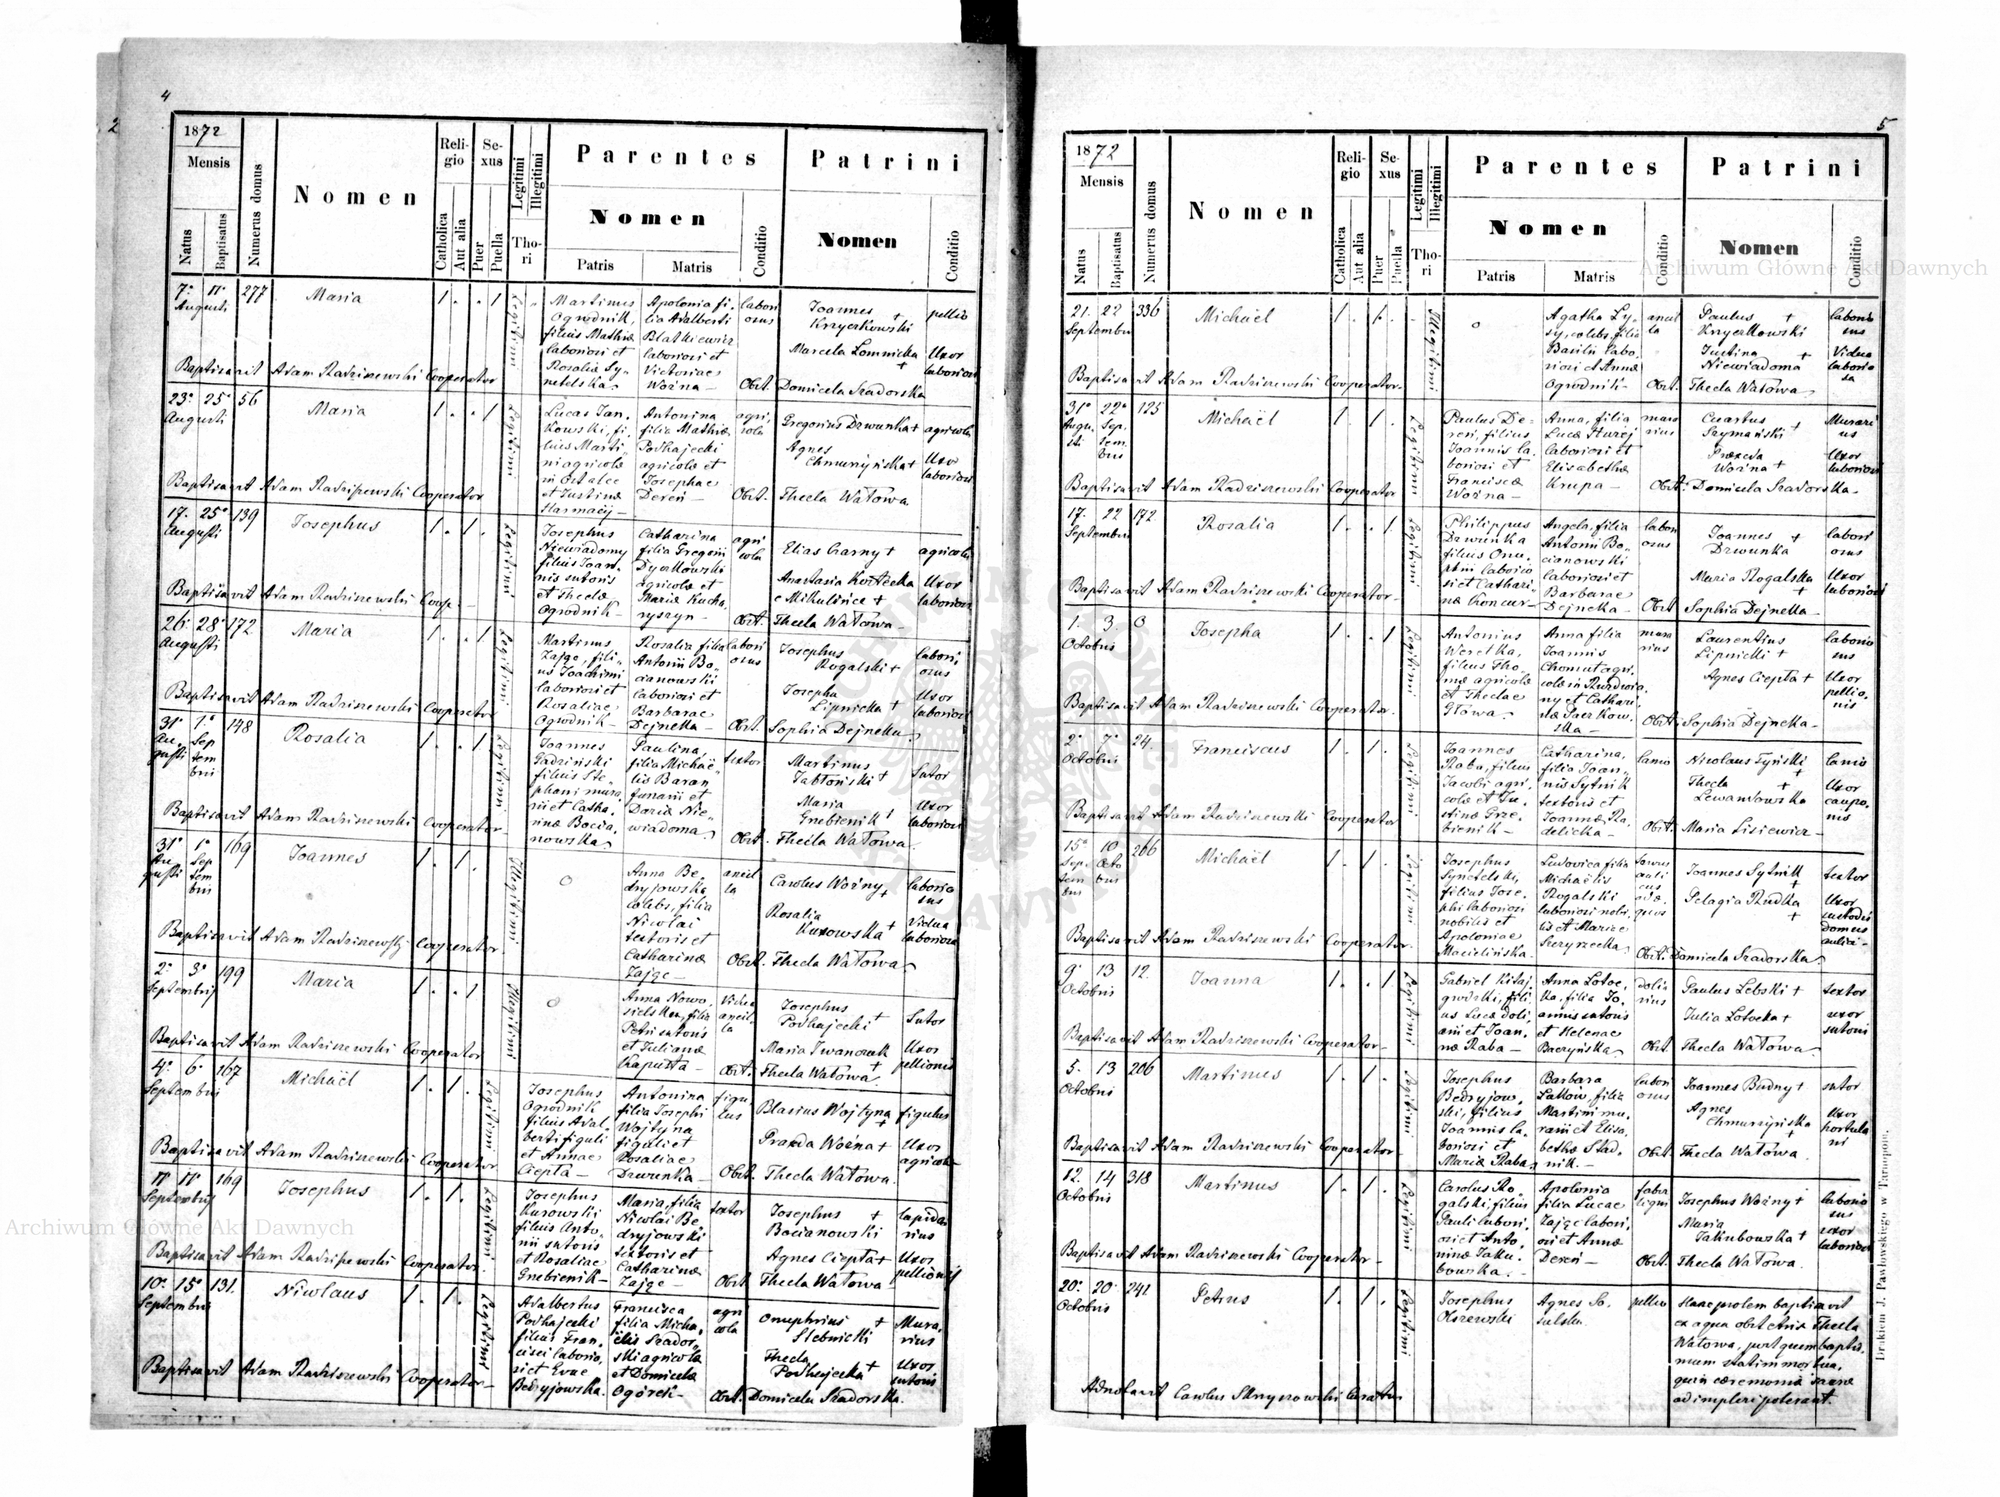 4
2
1872
Mensis
Natus
Baptisatus
Numerus domus
Nomen
Religio
Catholica
Aut alia
Sexus
Puer
Puella
Legitimi
Illegitimi
Thori
Parentes
Nomen
Patris
Matris
Conditio
Patrini
Nomen
Conditio
7. 11. 277 Maria 1 . . 1
Augusti
Legitimi
Martinus
Ogrodnik,
filius Mathiæ
laboriosi et
Rosalia Sy-
netelska
Apolonia fi-
lia Adalberti
laboriosi et
Victoriae
Woźna —
labori
osus
Joannes +
Krzyczkowski
Marcela Łomnicka +
Obst. Domicela Szadorska
pellio
Uxor
laboriosi
Baptisavit Adam Radziszewski Cooperator
23. 25. 56 Maria 1 . . 1
Augusti
Legitimi
Lucas Jan-
kowski, fi-
lius Marti-
ni agricolæ
et Justinæ
Antonina
filia Mathiæ
Podhajecki
agricolæ et
Josephae
Dereń —
agri
cola
Gregorius Drwunka +
Agnes
Obst. Thecla Watowa
agricola
Uxor
laboriosi
Baptisavit Adam Radziszewski Cooperator
17. 25. 139 Josephus 1 . 1
Augusti
Legitimi
Josephus
Niewiadomy
filius Joan-
nis sutoris
et Theclæ
Ogrodnik —
Catharina
filia Gregorii
agricolæ et
Mariæ Kucha-
ryszyn —
agri
cola
Elias Czarny +
Anastasia
e Mikulińce +
Obst. Thecla Watowa —
agricola
Uxor
laboriosi
Baptisavit Adam Radziszewski Coop —
26. 28. 172 Maria 1 . . 1
Augusti
Legitimi
Martinus
Zając, fili-
us Joachimi
laboriosi et
Rosaliae
Ogrodnik —
Rosalia filia
Antonii Bo-
cianowski
laboriosi et
Barbarae
Dejneka —
labori
osus
Josephus
Rogalski +
Josepha
Lipnicka +
Obst. Sophia Dejneka
labori
osus
Uxor
laboriosi
Baptisavit Adam Radziszewski Cooperator
31. 1. 148 Rosalia 1 . . 1
Au-
gusti
Sep
tem
bris
Legitimi
Joannes
filius Ste-
phani mura-
rii et Catha-
rinæ Bocia-
nowska
Paulina,
filia Michaë-
lis Baran
funarii et
Daria Nie-
wiadoma
textor
Martinus
Jabłoński +
Maria
Gnebienik +
Obst. Thecla Watowa
Sutor
Uxor
laboriosi
Baptisavit Adam Radziszewski Cooperator —
31. 1. 169 Joannes 1 . 1 .
Au-
gusti
Sep
tem
bris
Illegitimi
o
Anna Be-
dryjowska
cœlebs, filia
Nicolai
textoris et
Catharinæ
Zając —
ancil
la
Carolus Woźny +
Rosalia
Kurowska +
Obst. Thecla Watowa
laborio
sus
Vidua
laboriosa
Baptisavit Adam Radziszewski Cooperator.
2. 3. 199 Maria 1 . . 1
Septembris
Illegitimi
o
Anna Nowo-
sielska, filia
Petri sutoris
et Julianæ
Kaputa —
Vidua
ancil-
la
Josephus
Podhajecki +
Maria Iwanczuk +
Obst. Thecla Watowa
Sutor
Uxor
pellionis
Baptisavit Adam Radziszewski Cooperator
4. 6. 167 Michaël 1 . 1 .
Septembris
Legitimi
Josephus
Ogrodnik
filius Adal-
berti figuli
et Annae
Ciepta —
Antonina
filia Josephi
Wojtyna
figuli et
Rosaliae
Drwunka —
figu
lus
Blasius Wojtyna +
Woźna +
Obst. Thecla Watowa.
figulus
Uxor
agricolæ —
Baptisavit Adam Radziszewski Cooperator
11. 11. 169 Josephus 1 . 1 .
Septembris
Legitimi
Josephus
Kurowski
filius Anto-
nii sutoris
et Rosaliae
Gnebienik —
Maria, filia
Nicolai Be-
dryjowski
textoris et
Catharinæ
Zając —
textor
Josephus +
Bocianowski
Agnes Ciepta +
Obst. Thecla Watowa —
lapida-
rius
Uxor
pellionis
Baptisavit Adam Radziszewski Cooperator.
10. 15. 131. Nicolaus 1 . 1 .
Septembris
Legitimi
Adalbertus
Podhajecki
filius Fran-
cisci laborio-
si et Evae
Bedryjowska.
Francisca,
filia Micha-
ëlis Szador-
ski agricolæ
et Domicelæ
Ogórek —
agri
cola
Onuphrius +
Slebnicki
Thecla
Podhajecka +
Obst. Domicela Szadorska.
Mura-
rius
Uxor
sutoris
Baptisavit Adam Radziszewski Cooperator —
5
1872
Mensis
Natus
Baptisatus
Numerus domus
Nomen
Religio
Catholica
Aut alia
Sexus
Puer
Puella
Legitimi
Illegitimi
Thori
Parentes
Nomen
Patris
Matris
Conditio
Patrini
Nomen
Conditio
21. 22 336 Michaël 1 . 1 .
Septembris
Illegitimi
o
Agatha Ły-
sy, cœlebs, filia
Basilii labo-
riosi et Annæ
Ogrodnik —
ancil
la
Paulus +
Krzyczkowski
Justina +
Niewiadoma
Obst. Thecla Watowa
laborio
sus
Vidua
laborio
sa
Baptisavit Adam Radziszewski Cooperator —
31. 22. 125 Michaël 1 . 1 .
Augu-
sti
Sep-
tem-
bris
Legitimi
Paulus De-
reń, filius
Joannis la-
boriosi et
Franciscæ
Woźna —
Anna, filia
Lucæ
laboriosi et
Elisabethæ
Krupa —
mura
rius
Szymański +
Praxeda
Woźna +
Obst. Domicela Szadorska —
Murari
us
Uxor
laboriosi
Baptisavit Adam Radziszewski Cooperator
17. 22 172 Rosalia 1 . . 1
Septembris
Legitimi
Philippus
Drwunka
filius Onu-
phrii laborio-
si et Cathari-
næ
Angela, filia
Antonii Bo-
cianowski
laboriosi et
Barbarae
Dejneka —
labori
osus
Joannes +
Drwunka
Maria Rogalska +
Obst. Sophia Dejneka —
labori
osus
Uxor
laboriosi
Baptisavit Adam Radziszewski Cooperator.
1. 3 0 Josepha 1 . . 1
Octobris
Legitimi
Antonius
Weretka,
filius Tho-
mæ agricolæ
et Theclae
Głowa.
Anna filia
Joannis
mura
rius
Laurentius
Lipnicki +
Agnes Ciepta +
Obst. Sophia Dejneka —
laborio
sus
Uxor
pellio-
nis
Baptisavit Adam Radziszewski Cooperator.
2. 7. 24. Franciscus 1 . 1 .
Octobris
Legitimi
Joannes
Raba, filius
Jacobi agri-
colæ et Ju-
stinæ Grze-
bienik —
Catharina,
filia Joan-
nis Sytnik
textoris et
Joannæ Ra-
delicka —
lanio
Nicolaus Tyński +
Thecla
Lewandowska +
Obst. Maria Lisiewicz —
lanio
Uxor
caupo-
nis
Baptisavit Adam Radziszewski Cooperator
15. 10 206 Michaël 1 . 1 .
Sep-
tem
bris
Octo
bris
Legitimi
Josephus
Synetelski,
filius Jose-
phi laboriosi
nobilis et
Apoloniae
Ludovica filia
Michaëlis
Rogalski
laboriosi nobi-
lis et Mariæ
Joannes Sytnik +
Pelagia Rudka +
Obst. Domicela Szadorska
textor
Uxor
custodis
domus
aulicæ —
Baptisavit Adam Radziszewski Cooperator.
9. 13 12. Joanna 1 . . 1
Octobris
Legitimi
Gabriel Kitaj-
grodzki, fili-
us Lucæ doli-
arii et Joan-
næ Raba —
Anna Łotoc-
ka, filia Jo-
annis sutoris
et Helenae
Baczyńska
dolia
rius
Paulus Lebski +
Julia Łotocka +
Obst. Thecla Watowa
textor
uxor
sutoris
Baptisavit Adam Radziszewski Cooperator —
5. 13 206 Martinus 1 . 1 .
Octobris
Legitimi
Josephus
Bedryjow-
ski, filius
Joannis la-
boriosi et
Mariæ Raba
Barbara
filia
Martini mu-
rarii et Elisa-
bethæ Stad-
nik. —
labori
osus
Joannes Budny +
Agnes
Chmurzyńska +
Obst. Thecla Watowa.
sutor
Uxor
hortula
ni
Baptisavit Adam Radziszewski Cooperator
12. 14 318 Martinus 1 . 1 .
Octobris
Legitimi
Carolus Ro-
galski, filius
Pauli labori-
osi et Anto-
ninæ Jaku-
bowska. —
Apolonia
filia Lucae
Zając labori-
osi et Annæ
Dereń —
faber
ligni
Josephus Woźny +
Maria
Jakubowska +
Obst. Thecla Watowa.
laborio
sus
uxor
laboriosi
Baptisavit Adam Radziszewski Cooperator —
20. 20. 241 Petrus 1 . 1 .
Octobris
Legitimi
Josephus
Olszewski
Agnes So-
pellio
Hanc prolem baptisavit
ex aqua obstetrix Thecla
Watowa, post quem baptis-
mum statim mortua,
quin cæremoniæ sacræ
adimpleri poterant.
Adnotavit Carolus Skrzyszowski Curatus
Drukiem J. Pawłowskiego w Tarnopolu.
Archiwum Główne Akt Dawnych
Archiwum Główne Akt Dawnych
ARCHIWUM GŁÓWNE AKT DAWNYCH